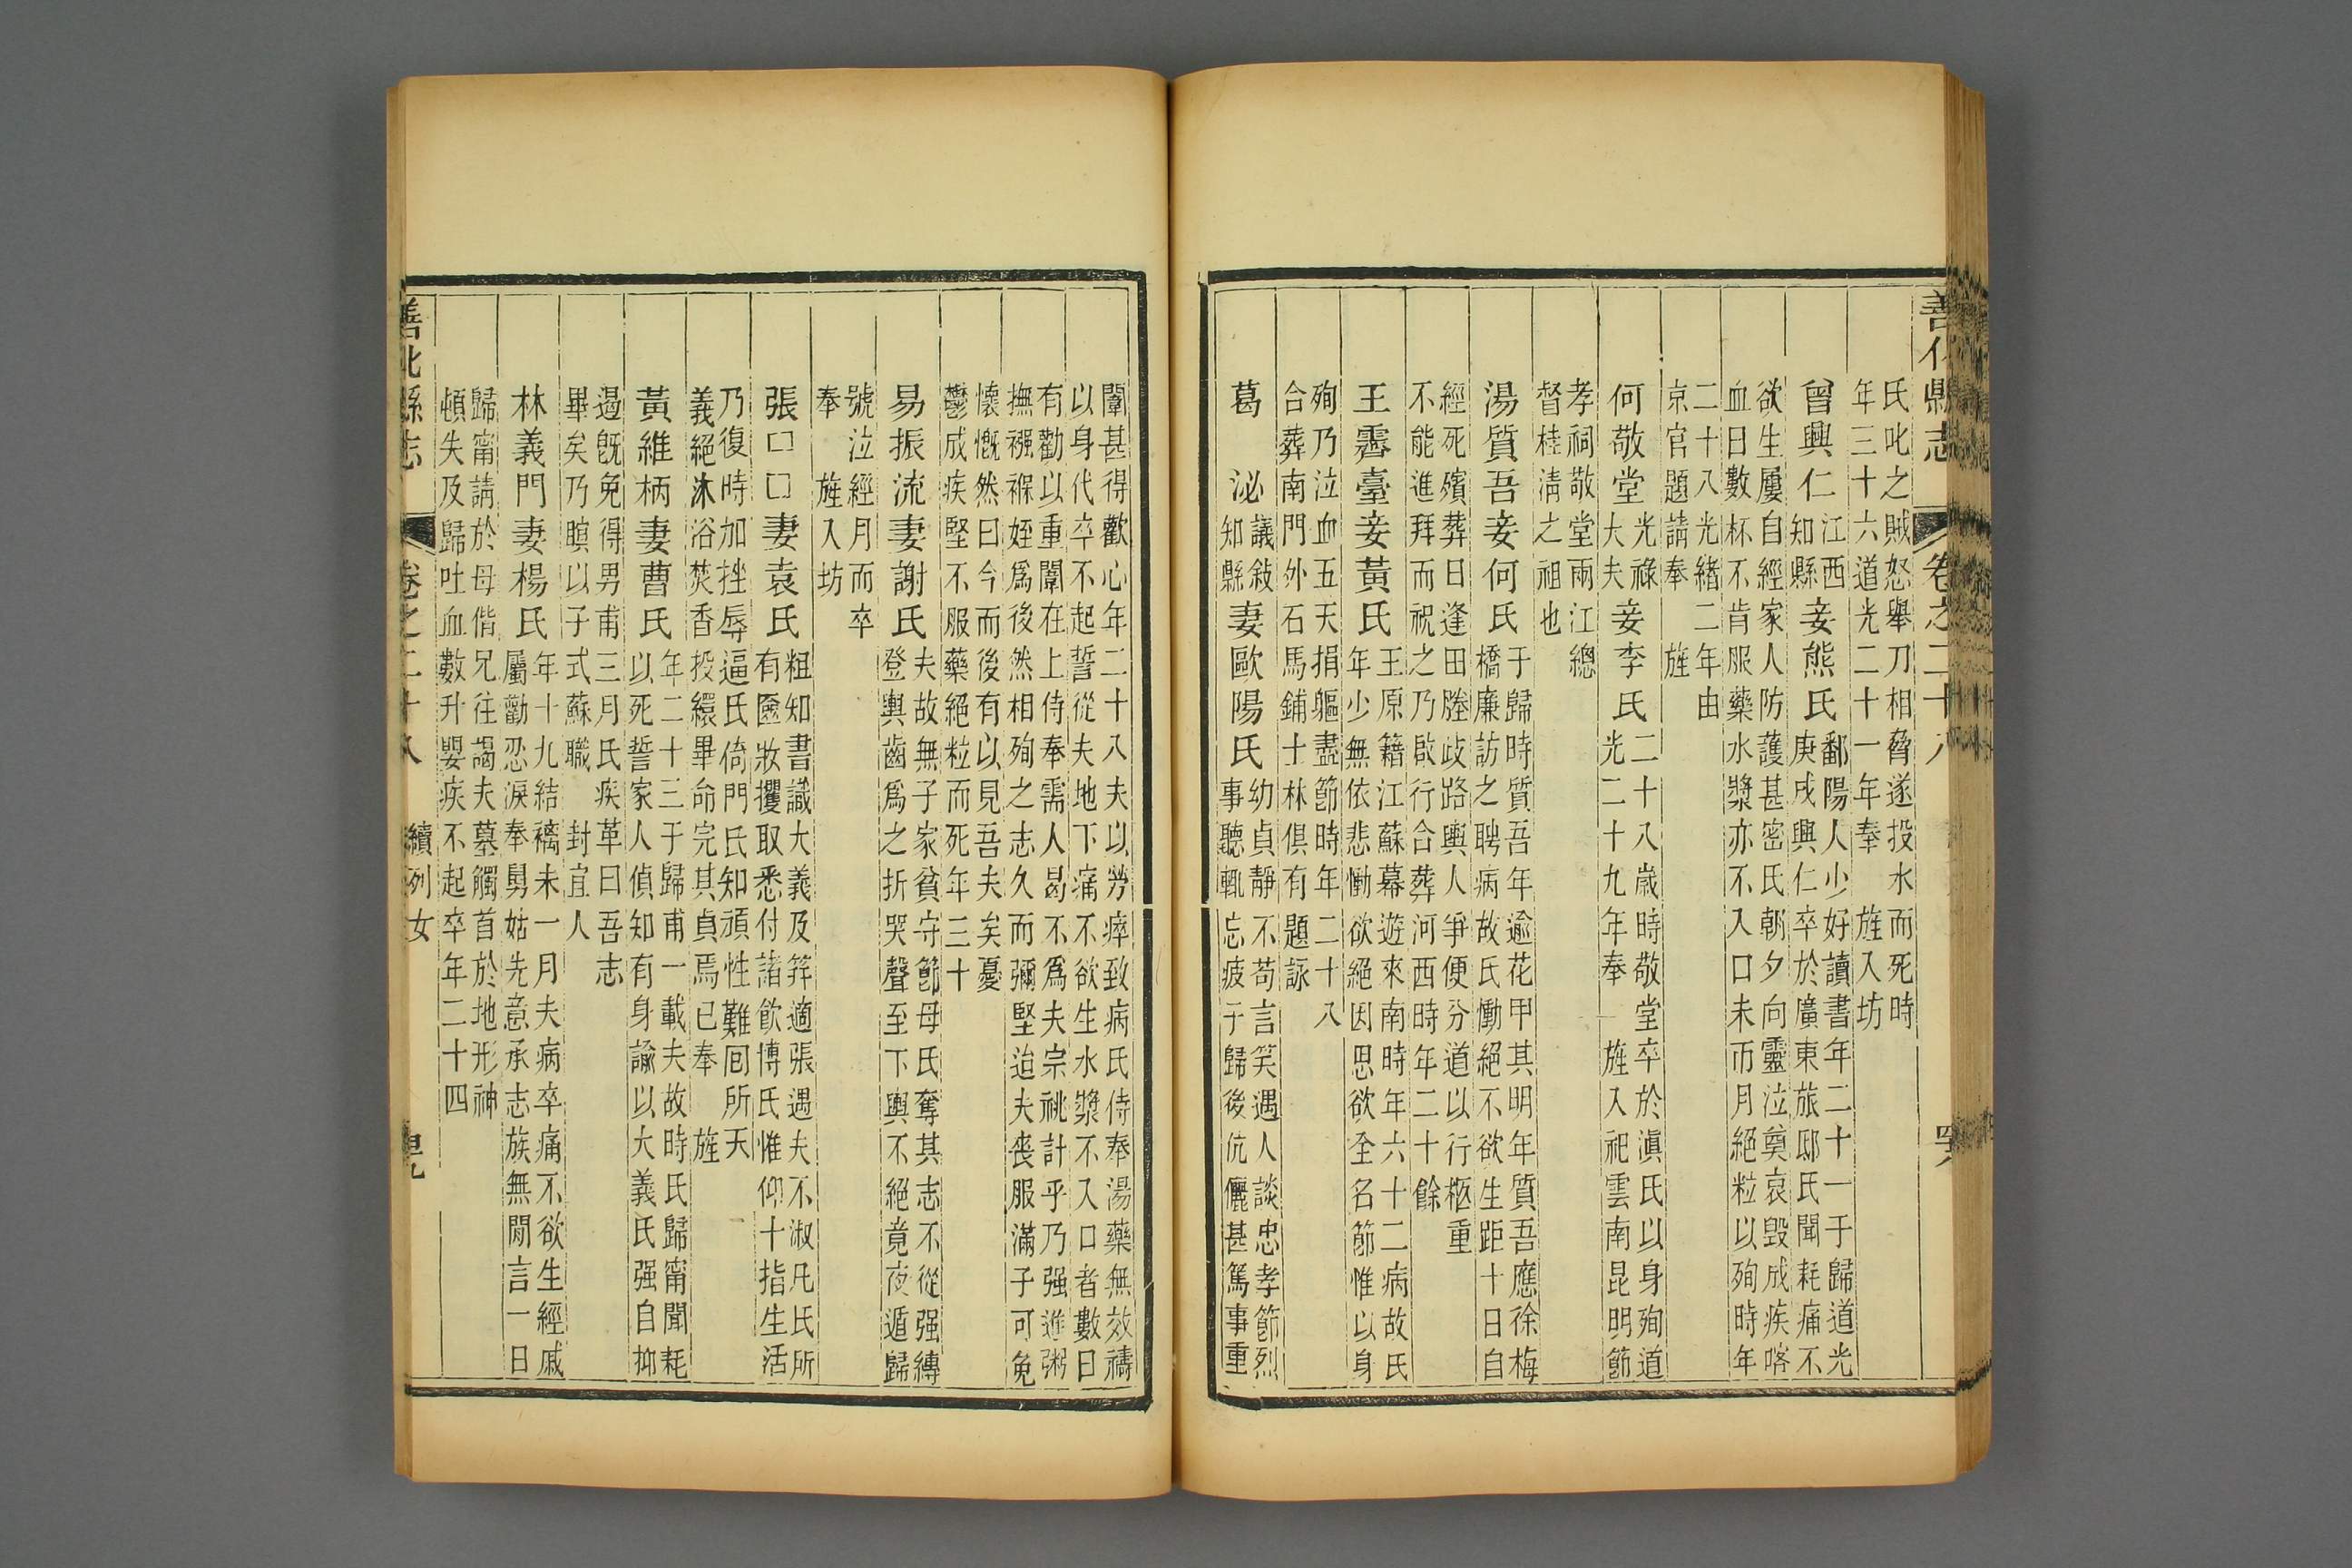 善化縣志 卷之二十八
氏叱之賊怒舉刀相脅遂投水而死時
年三十六道光二十一年奉 旌入坊
曾興仁 江西知縣 妾熊氏 鄱陽人少好讀書年二十一于歸道光
庚戌興仁卒於廣東旅邸氏聞耗痛不
欲生屢自經家人防護甚密氏朝夕向靈泣奠哀毀成疾喀
血日數杯不肯服藥水漿亦不入口未帀月絕粒以殉時年
二十八光緒二年由
京官題請奉 旌
何敬堂 光祿大夫 妾李氏 二十八歲時敬堂卒於滇氏以身殉道
光二十九年奉 旌入祀雲南昆明節
孝祠敬堂兩江總
督桂清之祖也
湯質吾妾何氏 于歸時質吾年逾花甲其明年質吾應徐梅
橋廉訪之聘病故氏慟絕不欲生距十日自
經死殯葬日逢田塍歧路輿人爭便分道以行柩重
不能進拜而祝之乃啟行合葬河西時年二十餘
王霱臺妾黃氏 王原籍江蘇幕遊來南時年六十二病故氏
年少無依悲慟欲絕因思欲全名節惟以身
殉乃泣血五天捐軀盡節時年二十八
合葬南門外石馬鋪士林俱有題詠
葛 泌 議敍知縣 妻歐陽氏 幼貞靜不苟言笑遇人談忠孝節烈
事聽輒忘疲于歸後伉儷甚篤事重
闈甚得歡心年二十八夫以勞瘁致病氏侍奉湯藥無效禱
以身代卒不起誓從夫地下痛不欲生水漿不入口者數日
有勸以重闈在上侍奉需人曷不爲夫宗祧計乎乃强進粥
撫襁褓姪爲後然相殉之志久而彌堅迨夫喪服滿子可免
懷慨然曰今而後有以見吾夫矣憂
鬱成疾堅不服藥絕粒而死年三十
易振流妻謝氏 夫故無子家貧守節母氏奪其志不從强縛
登輿齒爲之折哭聲至下輿不絕竟夜遁歸
號泣經月而卒
奉 旌入坊
張□□妻袁氏 粗知書識大義及笄適張遇夫不淑凡氏所
有匳妝攫取悉付諸飲博氏惟仰十指生活
乃復時加挫辱逼氏倚門氏知頑性難回所天
義絕沐浴焚香投繯畢命完其貞焉已奉 旌
黃維柄妻曹氏 年二十三于歸甫一載夫故時氏歸甯聞耗
以死誓家人偵知有身諭以大義氏强自抑
遏旣免得男甫三月氏疾革曰吾志
畢矣乃瞑以子式蘇職 封宜人
林義門妻楊氏 年十九結褵未一月夫病卒痛不欲生經戚
屬勸忍淚奉舅姑先意承志族無閒言一日
歸甯請於母偕兄往謁夫墓觸首於地形神
頓失及歸吐血數升嬰疾不起卒年二十四
善化縣志 卷之二十八 續列女